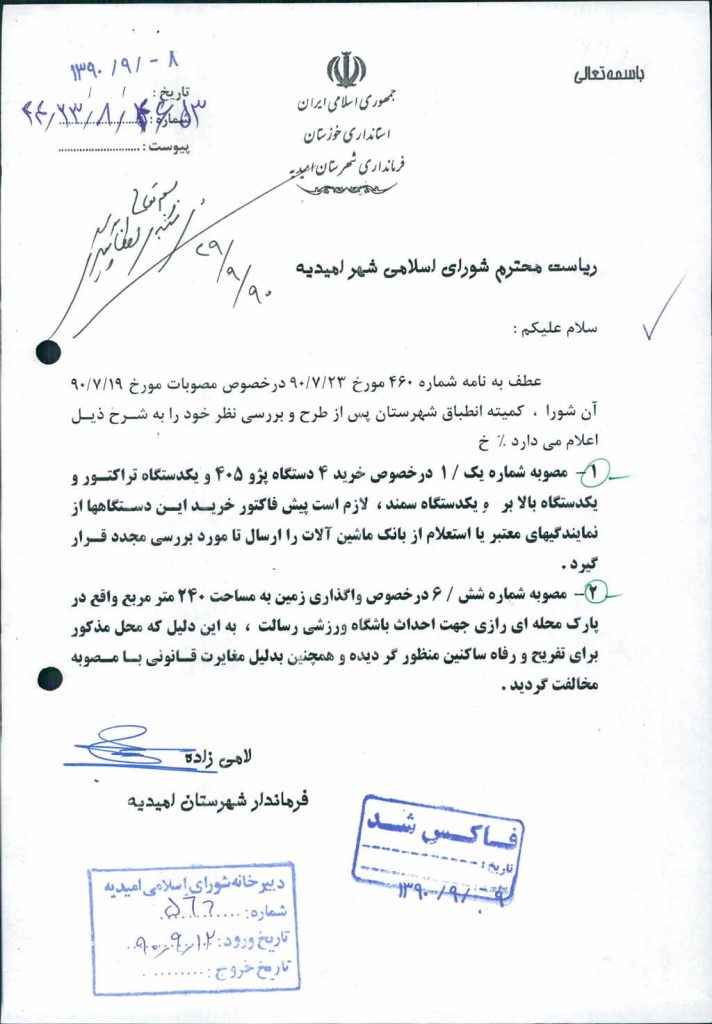 باسمه تعالی
جمهوری اسلامی ایران
استانداری خوزستان
فرمانداری شهرستان امیدیه
۱۳۹۰/۹/-۸
تاریخ : / /
شماره :
پیوست :
بسمه تعالی
۲۹/۹/۹۰
ریاست محترم شورای اسلامی شهر امیدیه
سلام علیکم :
عطف به نامه شماره ۴۶۰ مورخ ۹۰/۷/۲۳ درخصوص مصوبات مورخ ۹۰/۷/۱۹
آن شورا ، کمیته انطباق شهرستان پس از طرح و بررسی نظر خود را به شرخ ذیل
اعلام می دارد ٪ خ
۱- مصوبه شماره یک / ۱ درخصوص خرید ۴ دستگاه پژو ۴۰۵ و یکدستگاه تراکتور و
یکدستگاه بالا بر و یکدستگاه سمند ، لازم است پیش فاکتور خرید این دستگاهها از
نمایندگیهای معتبر یا استعلام از بانک ماشین آلات را ارسال تا مورد بررسی مجدد قرار
گیرد .
۲- مصوبه شماره شش / ۶ درخصوص واگذاری زمین به مساحت ۲۴۰ متر مربع واقع در
پارک محله ای رازی جهت احداث باشگاه ورزشی رسالت ، به این دلیل که محل مذکور
برای تفریح و رفاه ساکنین منظور گر دیده و همچنین بدلیل مغایرت قانونی با مصوبه
مخالفت گردید .
لامی زاده
فرماندار شهرستان امیدیه
فاکس شد
تاریخ :
۱۳۹۰/۹/۰۹
دبیرخانه شورای اسلامی امیدیه
شماره : ۵۶۶
تاریخ ورود : ۹۰.۹.۱۲
تاریخ خروج :